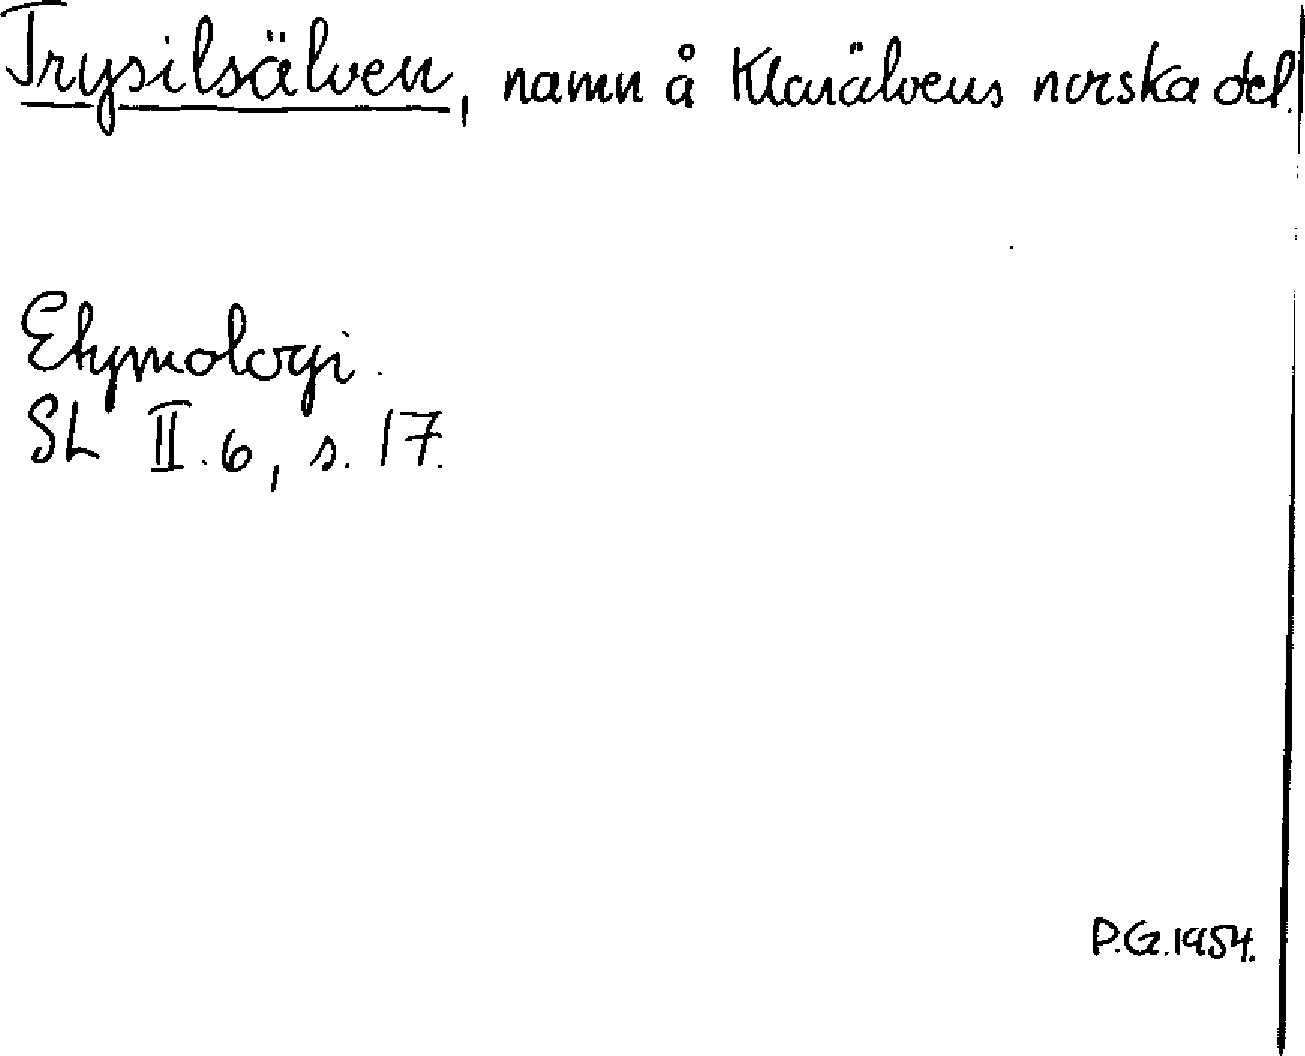 Trysilsälven, namn å Klarälvens norska del.
Etymologi.
SL II.6, s. 17.
P.G. 1954.